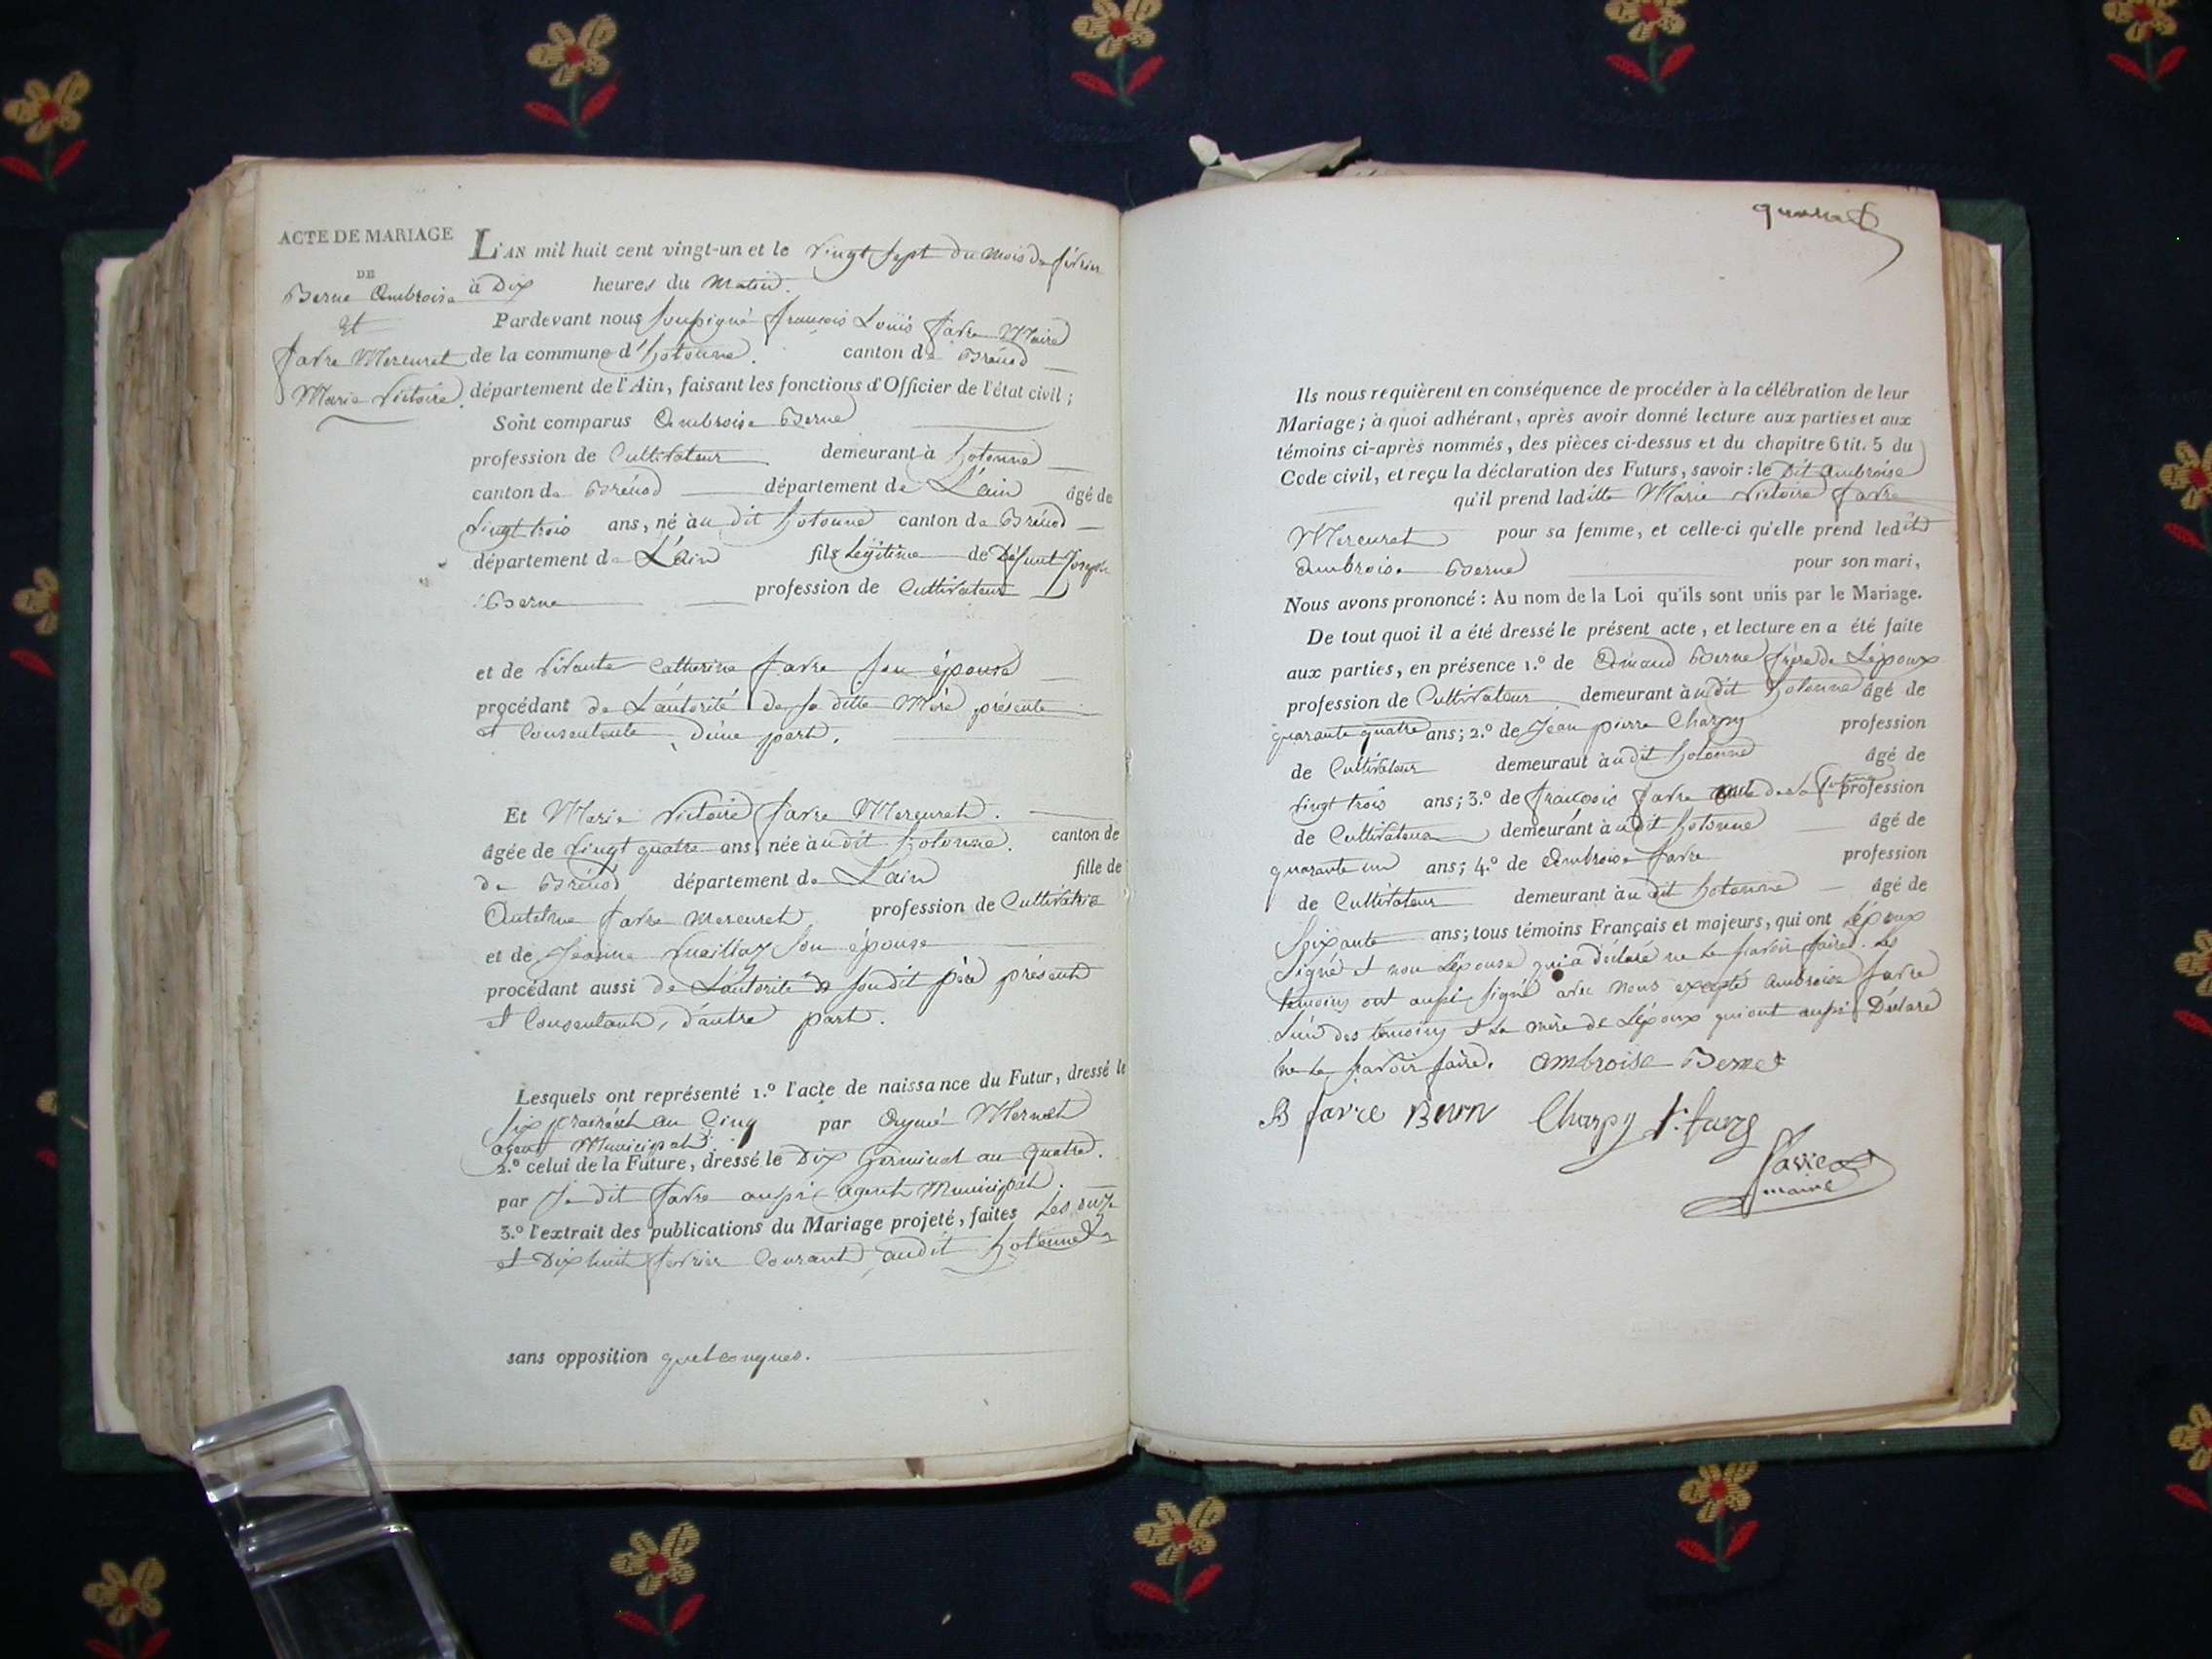 ACTE DE MARIAGE
DE
Berne Ambroise
Et
favre Mercuret
Marie Victoire.
L'AN mil huit cent vingt-un et le vingt sept du mois de février
à Dix heures du matin.
Pardevant nous soussigné françois Louis favre Maire
de la commune d'hotonne. canton de Brénod
département de l'Ain, faisant les fonctions d'Officier de l'état civil;
Sont comparus Ambroise Berne
profession de Cultivateur demeurant à hotonne
canton de Brénod département de L'ain âgé de
vingt trois ans, né au dit hotonne canton de Brénod
département de L'ain fils Légitime de Défunt Joseph
Berne profession de Cultivateur
et de vivante Catherine favre son épouse
procédant de L'autorité de sa ditte Mère présente
et Consentente, d'une part.
Et Marie Victoire favre Mercuret.
âgée de vingt quatre ans, née audit hotonne. canton de
de Brénod département de L'ain fille de
Antelme favre mercuret profession de Cultivatric
et de Jeanine son épouse
procédant aussi de L'autorité de son dit père présent
et Consentant, d'autre part.
Lesquels ont représenté 1.º l'acte de naissance du Futur, dressé le
six prairéal an Cinq par Aymé Mernet
agent Municipal
2.º celui de la Future, dressé le Dix Germinal an quatre.
par Le dit favre aussi agent Municipal.
3.º l'extrait des publications du Mariage projeté, faites Les onze
et Dix huit février Courant audit hotonne
sans opposition quelconques.
Ils nous requièrent en conséquence de procéder à la célébration de leur
Mariage; à quoi adhérant, après avoir donné lecture aux parties et aux
témoins ci-après nommés, des pièces ci-dessus et du chapitre 6 tit. 5 du
Code civil, et reçu la déclaration des Futurs, savoir: le dit Ambroise
qu'il prend laditte Marie Victoire favre
Mercuret pour sa femme, et celle-ci qu'elle prend ledit
Ambroise Berne pour son mari,
Nous avons prononcé: Au nom de la Loi qu'ils sont unis par le Mariage.
De tout quoi il a été dressé le présent acte, et lecture en a été faite
aux parties, en présence 1.º de Berne frère de L'époux
profession de Cultivateur demeurant audit hotonne âgé de
quarante quatre ans; 2.º de Jean pierre Charpy profession
de Cultivateur demeurant audit hotonne âgé de
vingt trois ans; 3.º de françois favre de la profession
de Cultivateur demeurant audit hotonne âgé de
quarante un ans; 4.º de Ambroise favre profession
de Cultivateur demeurant au dit hotonne âgé de
Soixante ans; tous témoins Français et majeurs, qui ont L'époux
signé et non L'épouse qui a déclaré ne Le savoir faire. Les
temoins ont aussi signé avec nous excepté Ambroise favre
L'un des témoins et La mère de L'époux qui ont aussi Déclaré
ne Le savoir faire. Ambroise Berne
favre Bern Charpy f. favre
favre
maire